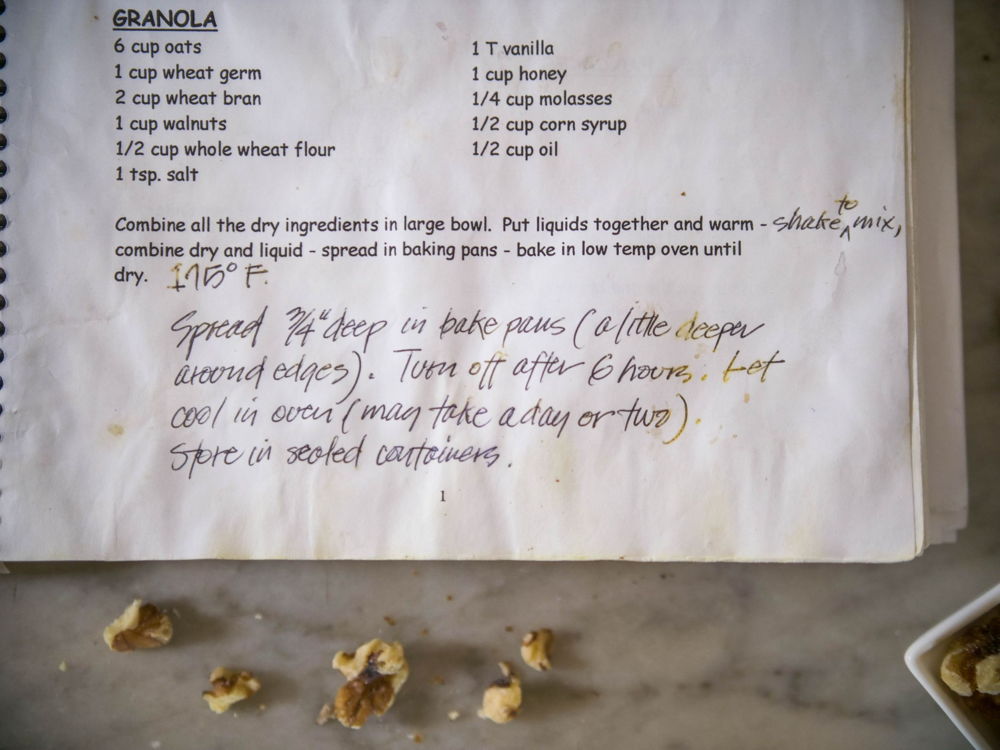 GRANOLA
6 cup oats
1 cup wheat germ
2 cup wheat bran
1 cup walnuts
1/2 cup whole wheat flour
1 tsp. salt
1 T vanilla
1 cup honey
1/4 cup molasses
1/2 cup corn syrup
1/2 cup oil
Combine all the dry ingredients in large bowl. Put liquids together and warm - shake to mix,
combine dry and liquid - spread in baking pans - bake in low temp oven until
dry. 175° F.
Spread 3/4" deep in bake pans (a little deeper
around edges). Turn off after 6 hours. Let
cool in oven (may take a day or two).
Store in sealed containers.
1